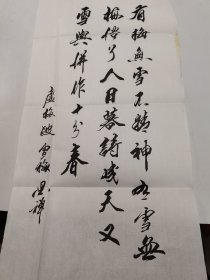 有梅無雪不精神有雪無
梅俗了人日暮詩成天又
雪與梅併作十分春
盧梅坡雪梅